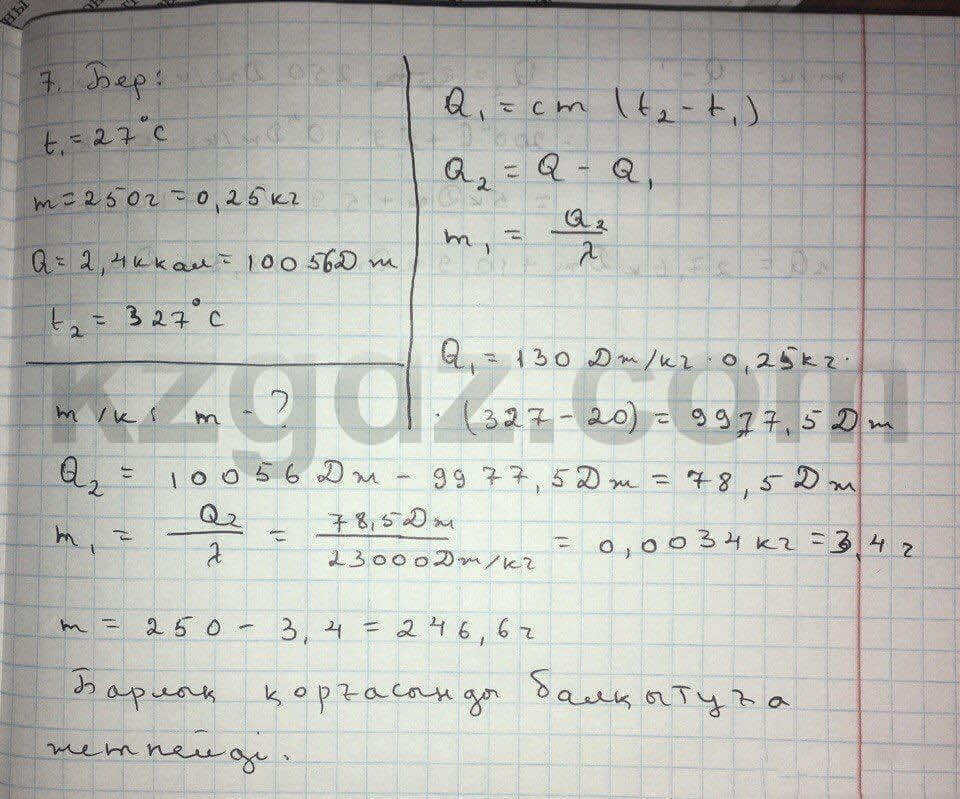 7. Бер:
t₁ = 27°C
m = 250г = 0,25кг
Q = 2,4ккал = 10056Дж
t₂ = 327°C
т/к: m - ?
Q₁ = cm (t₂ - t₁)
Q₂ = Q - Q₁
m₁ = Q₂/λ
Q₁ = 130 Дж/кг · 0,25кг ·
· (327 - 20) = 9977,5 Дж
Q₂ = 10056 Дж - 9977,5 Дж = 78,5 Дж
m₁ = Q₂/λ = 78,5 Дж/23000Дж/кг = 0,0034кг = 3,4 г
m = 250 - 3,4 = 246,6г
Барлық қорғасынды балқытуға
жетпейді.
kzgdz.com